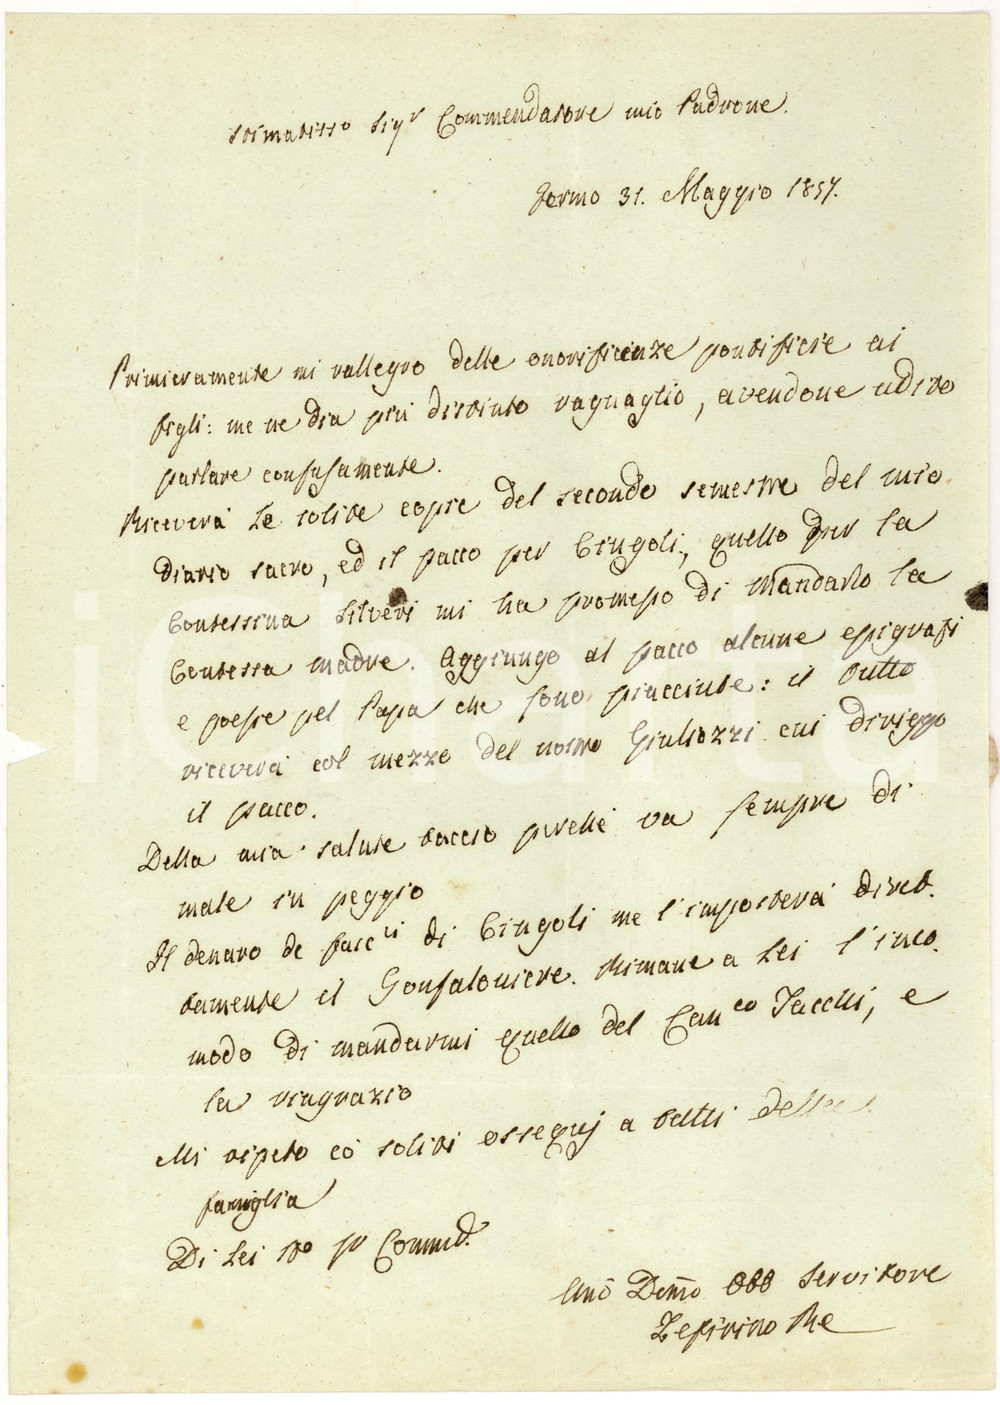 Stimatisso Sigr Commendatore mio Padrone.
Fermo 31. Maggio 1857.
Primieramente mi rallegro delle onorificenze pontificie ai
figli: me ne dia più distinto raguaglio, avendone udito
parlare confusamente.
Riceverà le solite copie del secondo semestre del mio
diario sacro, ed il pacco per Cingoli, quello per la
Contessina Silveri mi ha promesso di mandarlo la
Contessa madre. Aggiungo al pacco alcune epigrafi
e poesie pel Papa che sono piacciute: il tutto
riceverà col mezzo del nostro Giuliozzi cui dirieggo
il pacco.
Della mia salute taccio perchè va sempre di
male in peggio
Il denaro de fascli di Cingoli me l'imposterà diret.
tamente il Gonfaloniere. Rimane a Lei l'inco.
modo di mandarmi quello del Canco Tacchi, e
la ringrazio
Mi ripeto có soliti ossequj a tutti della
famiglia
Di Lei Sigo Commd.
Umo Demo Obb Servitore
Zefirino Re